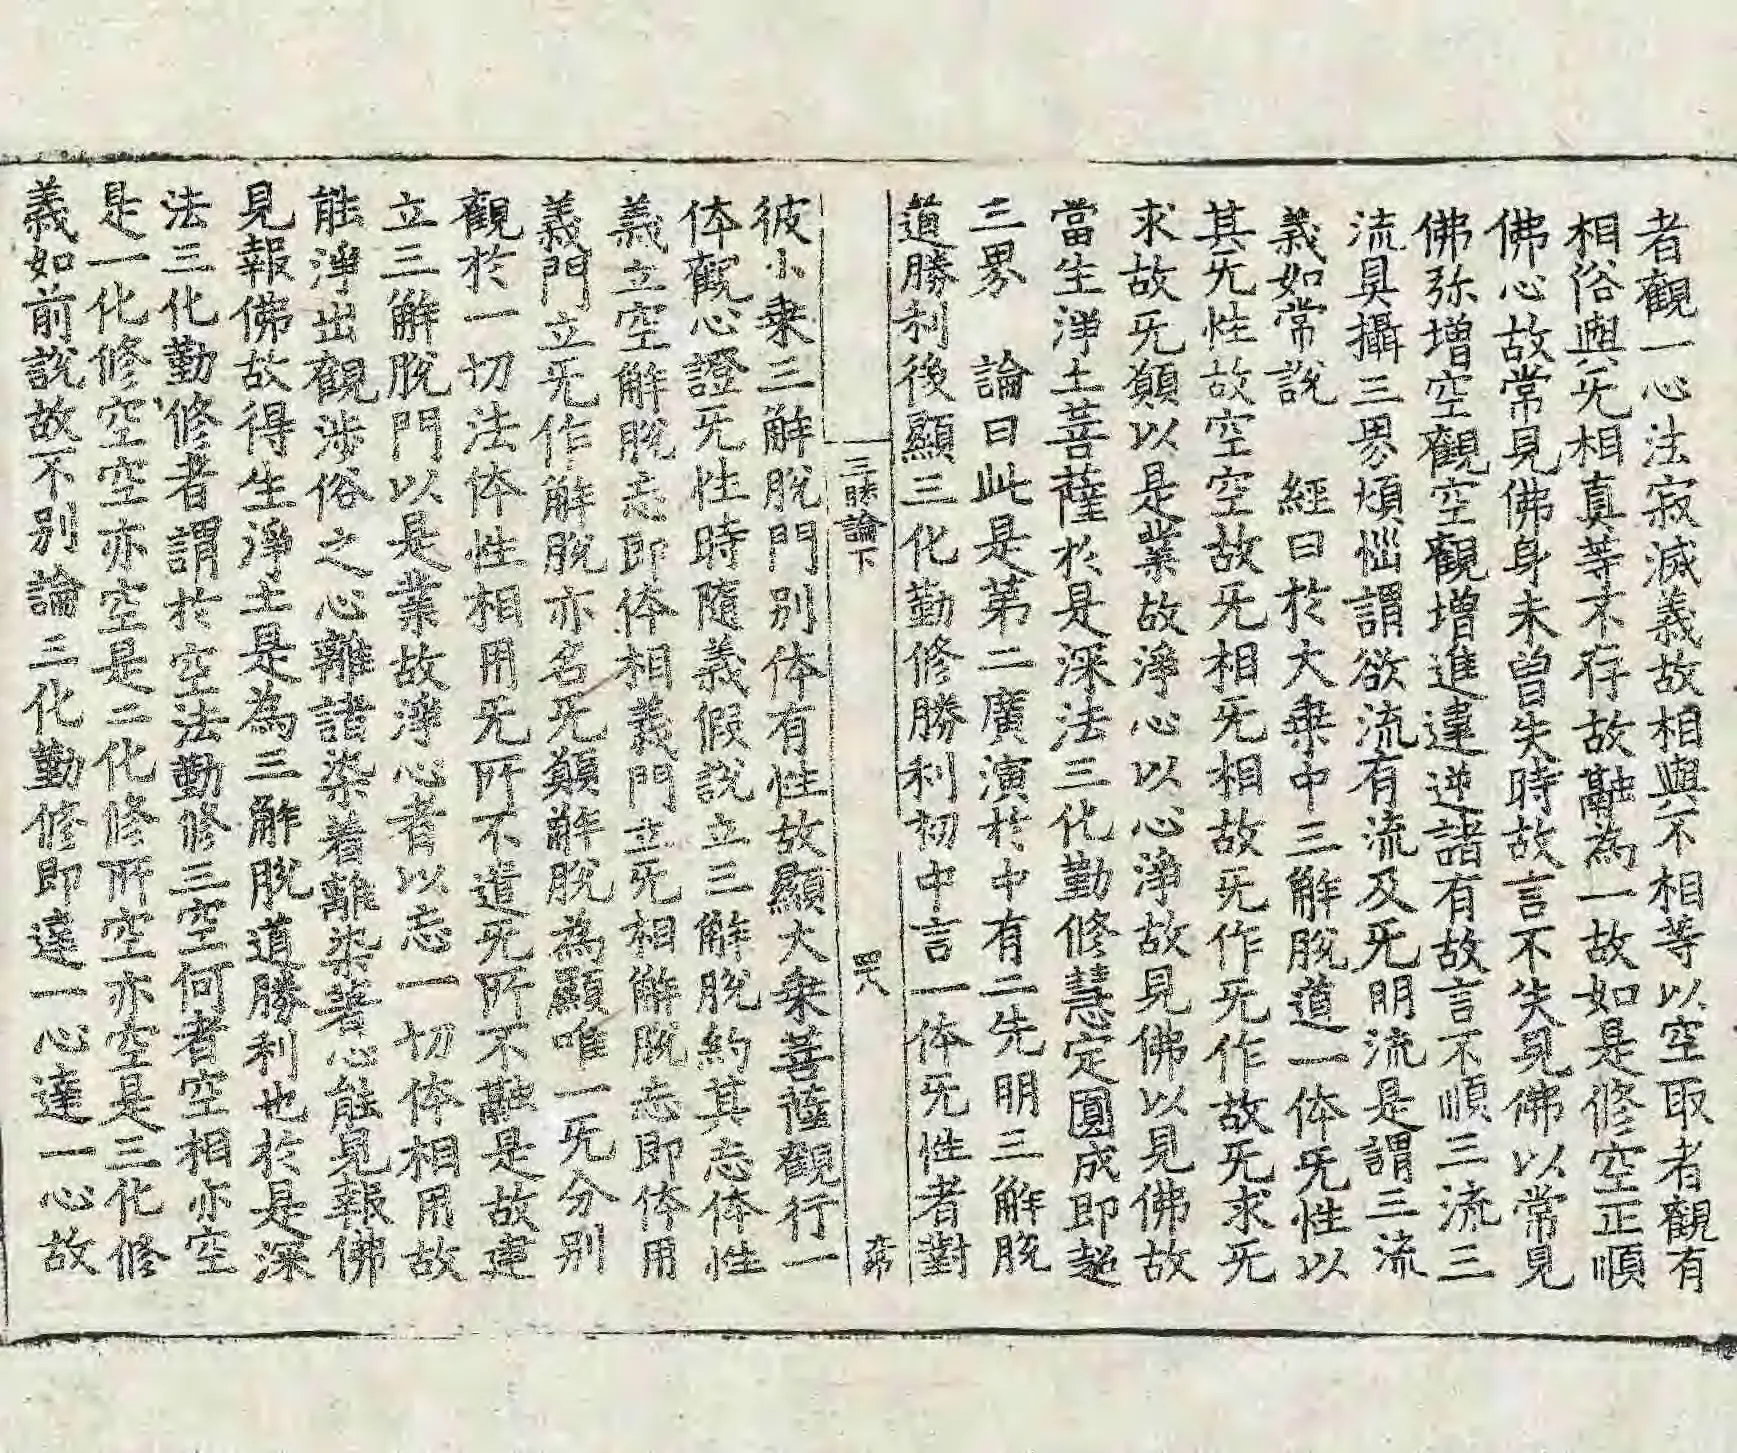 者觀一心法寂滅義故相與不相等以空取者觀有
相俗與旡相真等不存故融為一故如是修空正順
佛心故常見佛身未曾失時故言不失見佛以常見
佛弥增空觀空觀增進違逆諸有故言不順三流三
流具攝三界煩惱謂欲流有流及旡明流是謂三流
義如常說　經曰於大乗中三解脫道一体旡性以
其旡性故空空故旡相旡相故旡作旡作故旡求旡
求故旡願以是業故淨心以心淨故見佛以見佛故
當生淨土菩薩於是深法三化勤修慧定圓成即超
三界　論曰此是第二廣演於中有二先明三解脫
道勝利後顯三化勤修勝利初中言一体旡性者對
三昧論下　四八　
彼小乗三解脫門別体有性故顯大乗菩薩觀行一
体觀心證旡性時隨義假說立三解脫約其忘体性
義立空解脫忘即体相義門立旡相解脫忘即体用
義門立旡作解脫亦名旡願解脫為顯唯一旡分別
觀於一切法体性相用旡所不遣旡所不融是故建
立三解脫門以是業故淨心者以忘一切体相用故
能淨出觀涉俗之心離諸染着離染著心能見報佛
見報佛故得生淨土是為三解脫道勝利也於是深
法三化勤修者謂於空法勤修三空何者空相亦空
是一化修空空亦空是二化修所空亦空是三化修
義如前說故不別論三化勤修即達一心達一心故